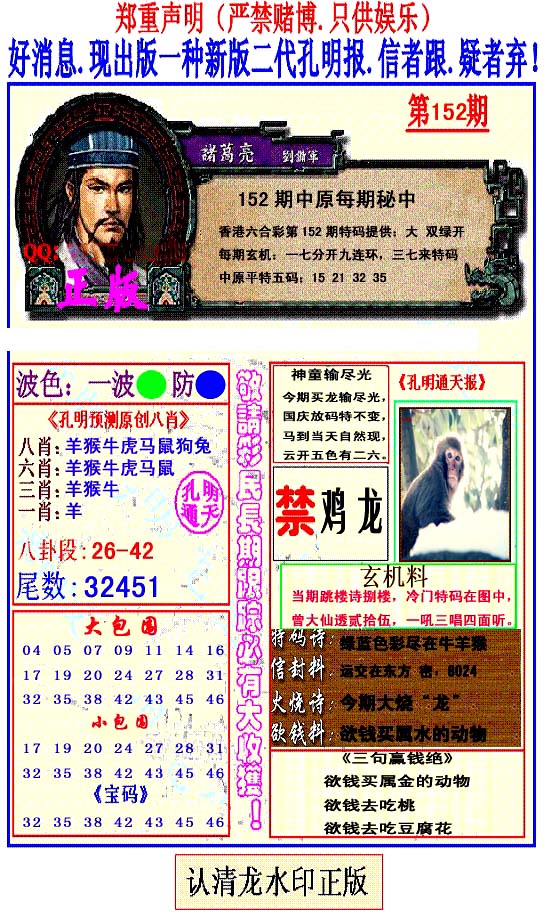 郑重声明（严禁赌博.只供娱乐）
好消息.现出版一种新版二代孔明报.信者跟.疑者弃!
第152期
諸葛亮
152 期中原每期秘中
香港六合彩第 152 期特码提供：大 双绿开
每期玄机：一七分开九连环，三七来特码
中原平特五码：15 21 32 35
QQ:
正版
波色：一波 防
《孔明预测原创八肖》
八肖:羊猴牛虎马鼠狗兔
六肖:羊猴牛虎马鼠
三肖:羊猴牛
一肖:羊
孔明
通天
八卦段:26-42
尾数:32451
大包围
04 05 07 09 11 14 16
17 19 20 24 27 28 31
32 35 38 42 43 45 46
小包围
17 19 20 24 27 28 31
32 35 38 42 43 45 46
《宝码》
32 35 38 42 43 45 46
敬請彩民長期跟踪必有大收獲！
神童输尽光
今期买龙输尽光，
国庆放码特不变，
马到当天自然现，
云开五色有二六。
《孔明通天报》
禁鸡龙
玄机料
当期跳楼诗捌楼，冷门特码在图中，
曾大仙透贰拾伍，一吼三唱四面听。
特码诗：绿蓝色彩尽在牛羊猴
信封料：运交在东方 密，8024
火烧诗：今期大烧“龙”
欲钱料：欲钱买属水的动物
《三句赢钱绝》
欲钱买属金的动物
欲钱去吃桃
欲钱去吃豆腐花
认清龙水印正版